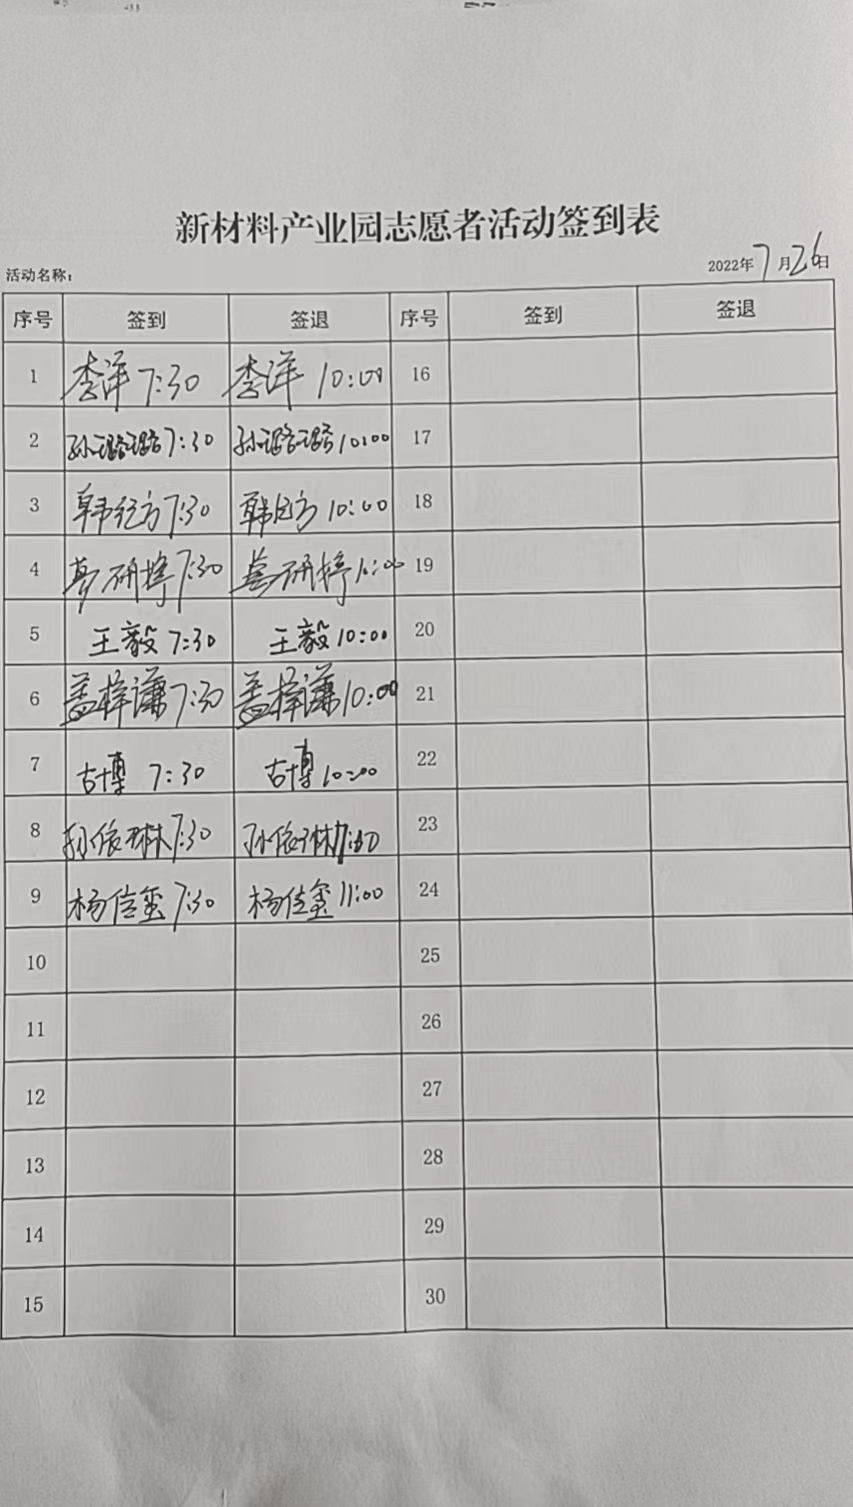 新材料产业园志愿者活动签到表
活动名称：
2022年7月26日
序号 签到 签退 序号 签到 签退
1 李洋 7:30 李洋 10:00 16
2 孙璐璐 7:30 孙璐璐 10:00 17
3 7:30 10:00 18
4 7:30 10:00 19
5 王毅 7:30 王毅 10:00 20
6 盖梓谦 7:30 盖梓谦 10:00 21
7 古博 7:30 古博 10:00 22
8 孙依琳 7:30 孙依琳 23
9 杨信玺 7:30 杨信玺 11:00 24
10 25
11 26
12 27
13 28
14 29
15 30